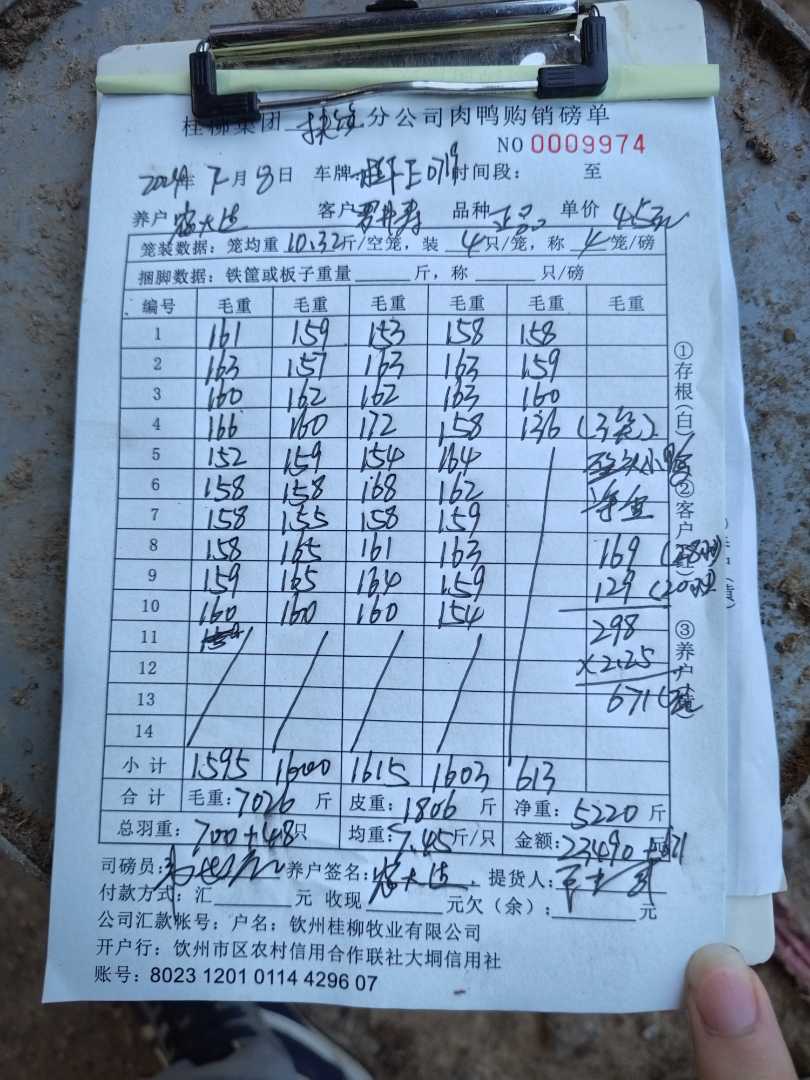 桂柳集团 分公司肉鸭购销磅单
NO 0009974
2024年 7月 8日 车牌 时间段： 至
养户 客户 品种 正品 单价 4.5元
笼装数据：笼均重 10.32 斤/空笼，装 4 只/笼，称 4 笼/磅
捆脚数据：铁筐或板子重量 斤，称 只/磅
编号 毛重 毛重 毛重 毛重 毛重 毛重
1 161 159 153 158 158
2 163 157 163 163 159
3 160 162 162 163 160
4 166 160 172 158 136 (3笼)
5 152 159 154 164
6 158 158 168 162
7 158 155 158 159 净重
8 158 165 161 163 169 (28只)
9 159 165 164 159 129 (20只)
10 160 160 160 154
11 298
12 ×2.25
13 671元
14
小计 1595 1600 1615 1603 613
合计 毛重：7026 斤 皮重：1806 斤 净重：5220 斤
总羽重：700+48只 均重：7.45斤/只 金额：23490+671元
司磅员： 养户签名： ，提货人：
付款方式：汇 元 收现 元欠（余）： 元
公司汇款帐号：户名：钦州桂柳牧业有限公司
开户行：钦州市区农村信用合作联社大垌信用社
账号：8023 1201 0114 4296 07
①存根（白）
②客户（红）
③养户（黄）